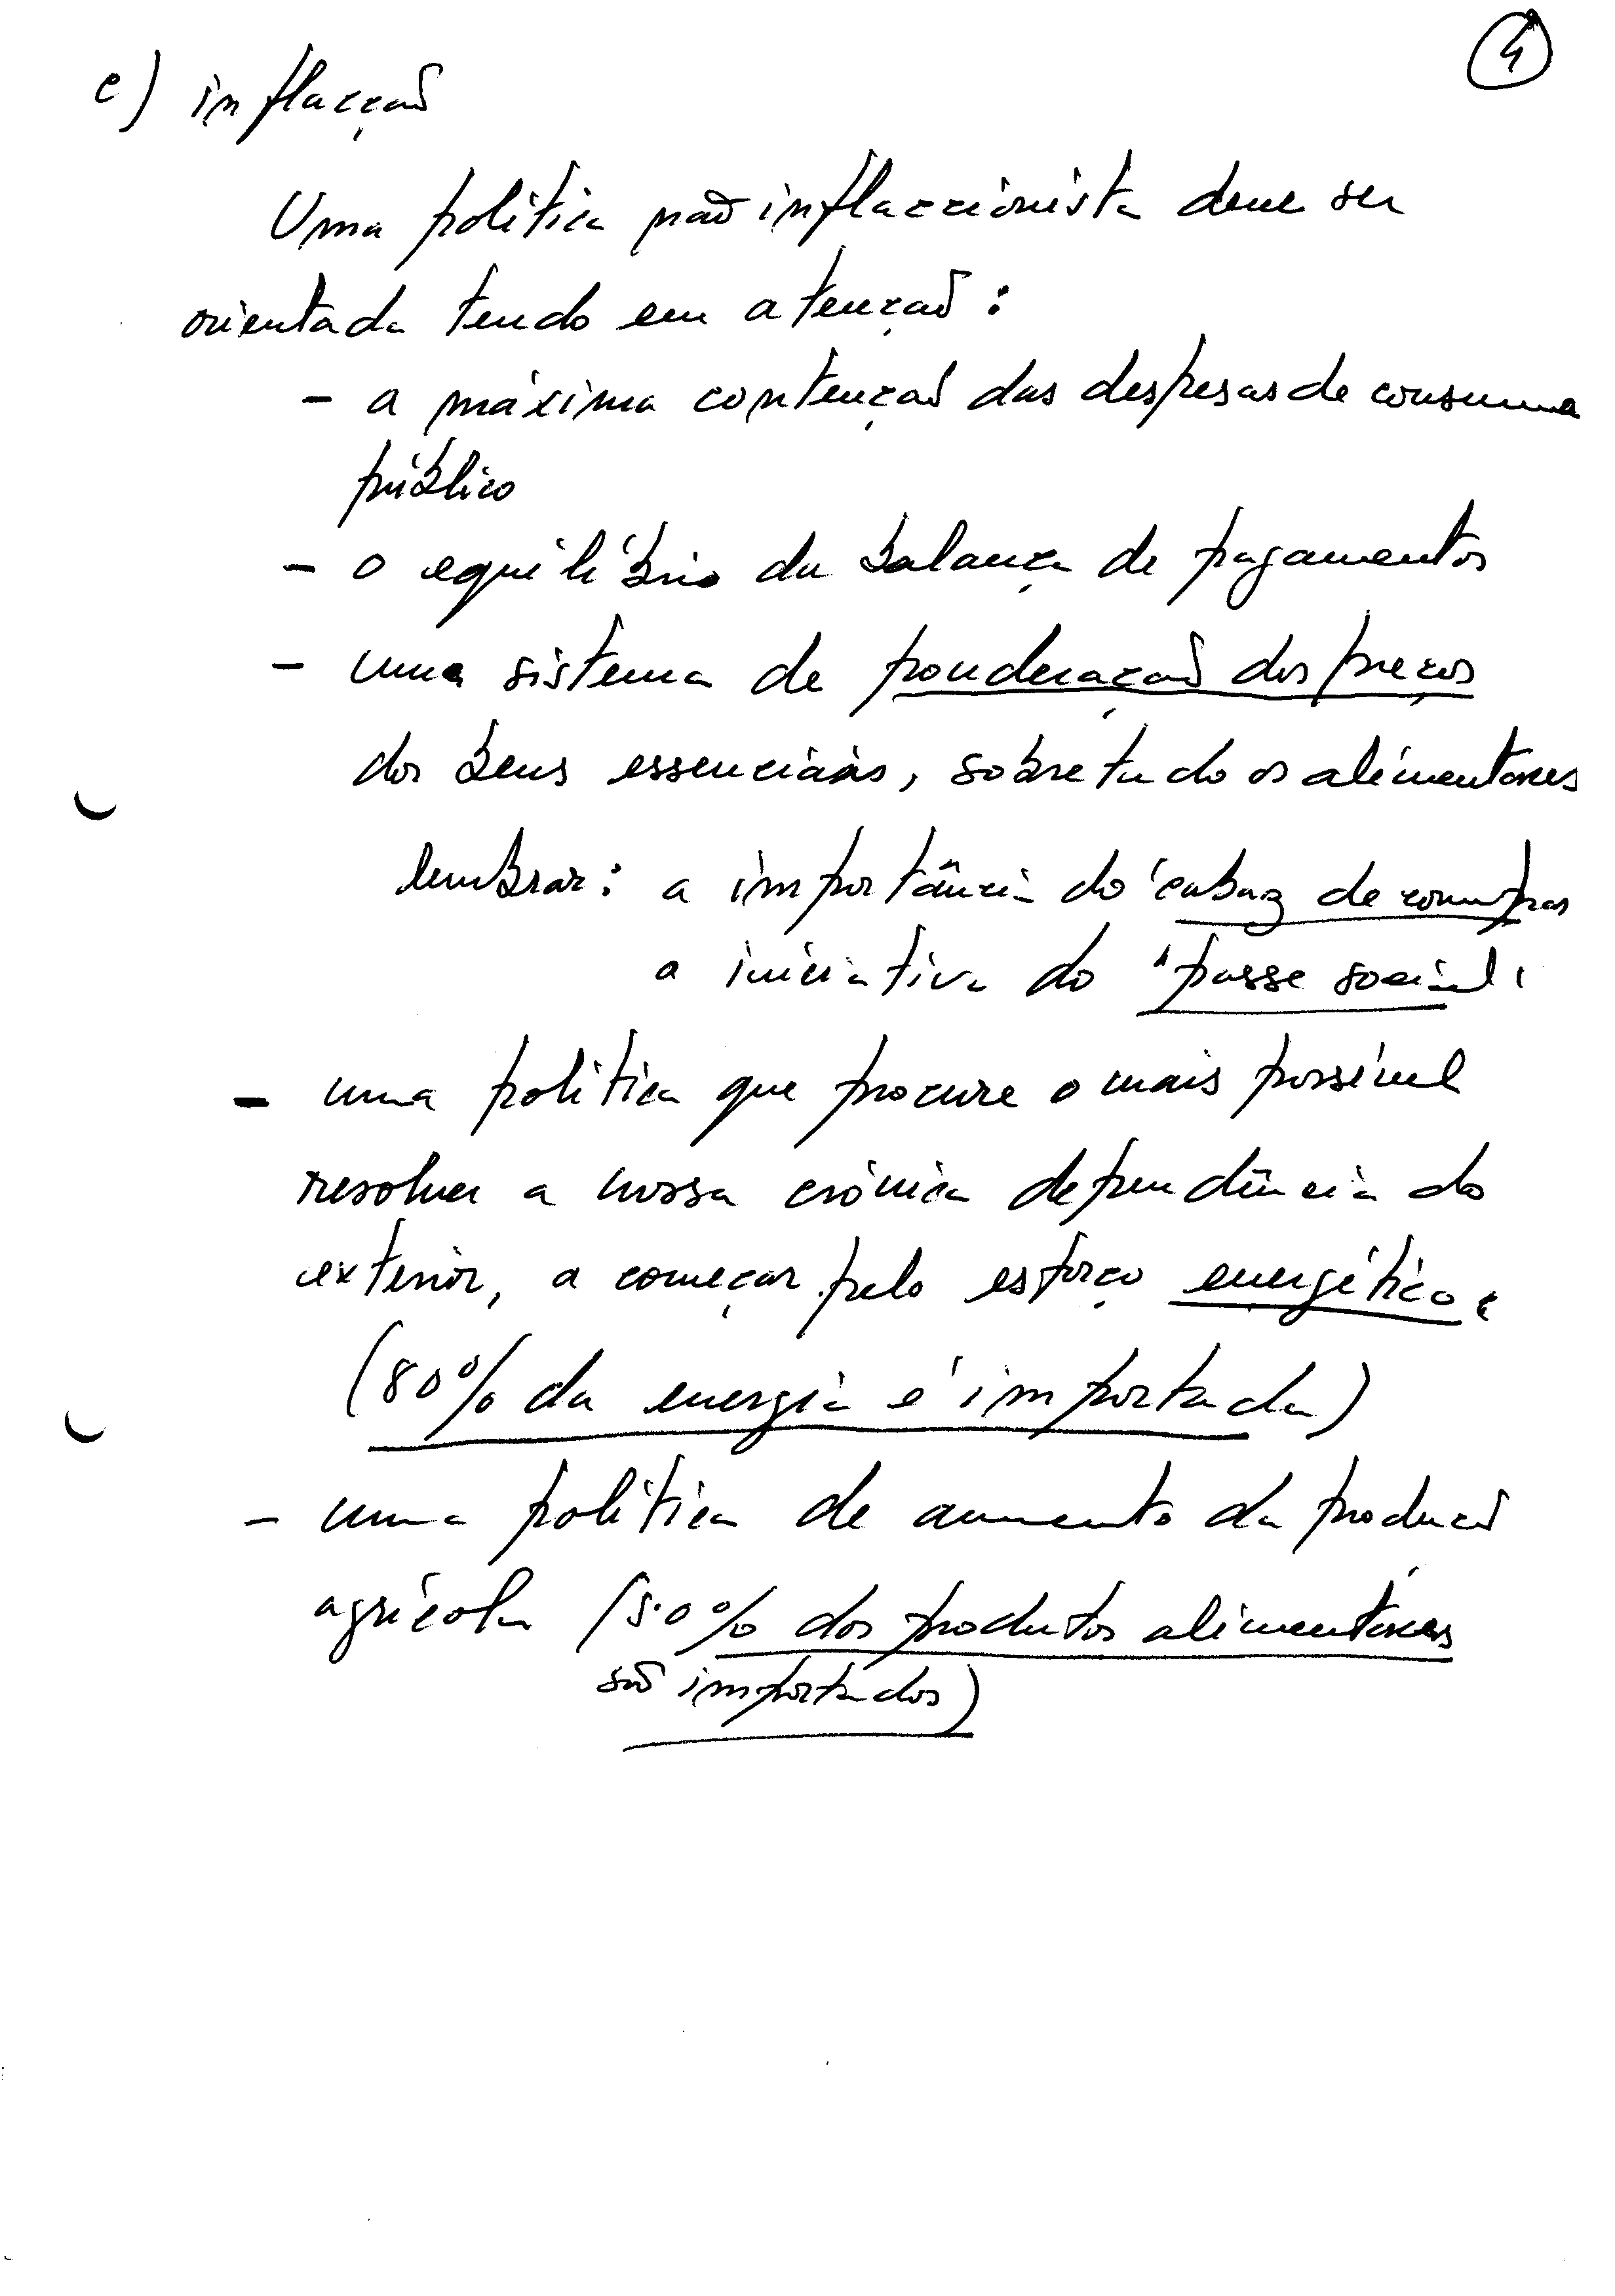 4
c) inflacção
Uma política não inflaccionista deve ser
orientada tendo em atenção:
- a máxima contenção das despesas de consumo
público
- o equilíbrio da balança de pagamentos
- um sistema de ponderação dos preços
dos bens essenciais, sobretudo os alimentares
lembrar: a importância do 'cabaz de compras
a iniciativa do 'passe social'
- uma política que procure o mais possível
resolver a nossa crónica dependência do
exterior, a começar pelo esforço energético.
(80% da energia é importada)
- uma política de aumento da produção
agrícola (50% dos produtos alimentares
são importados)